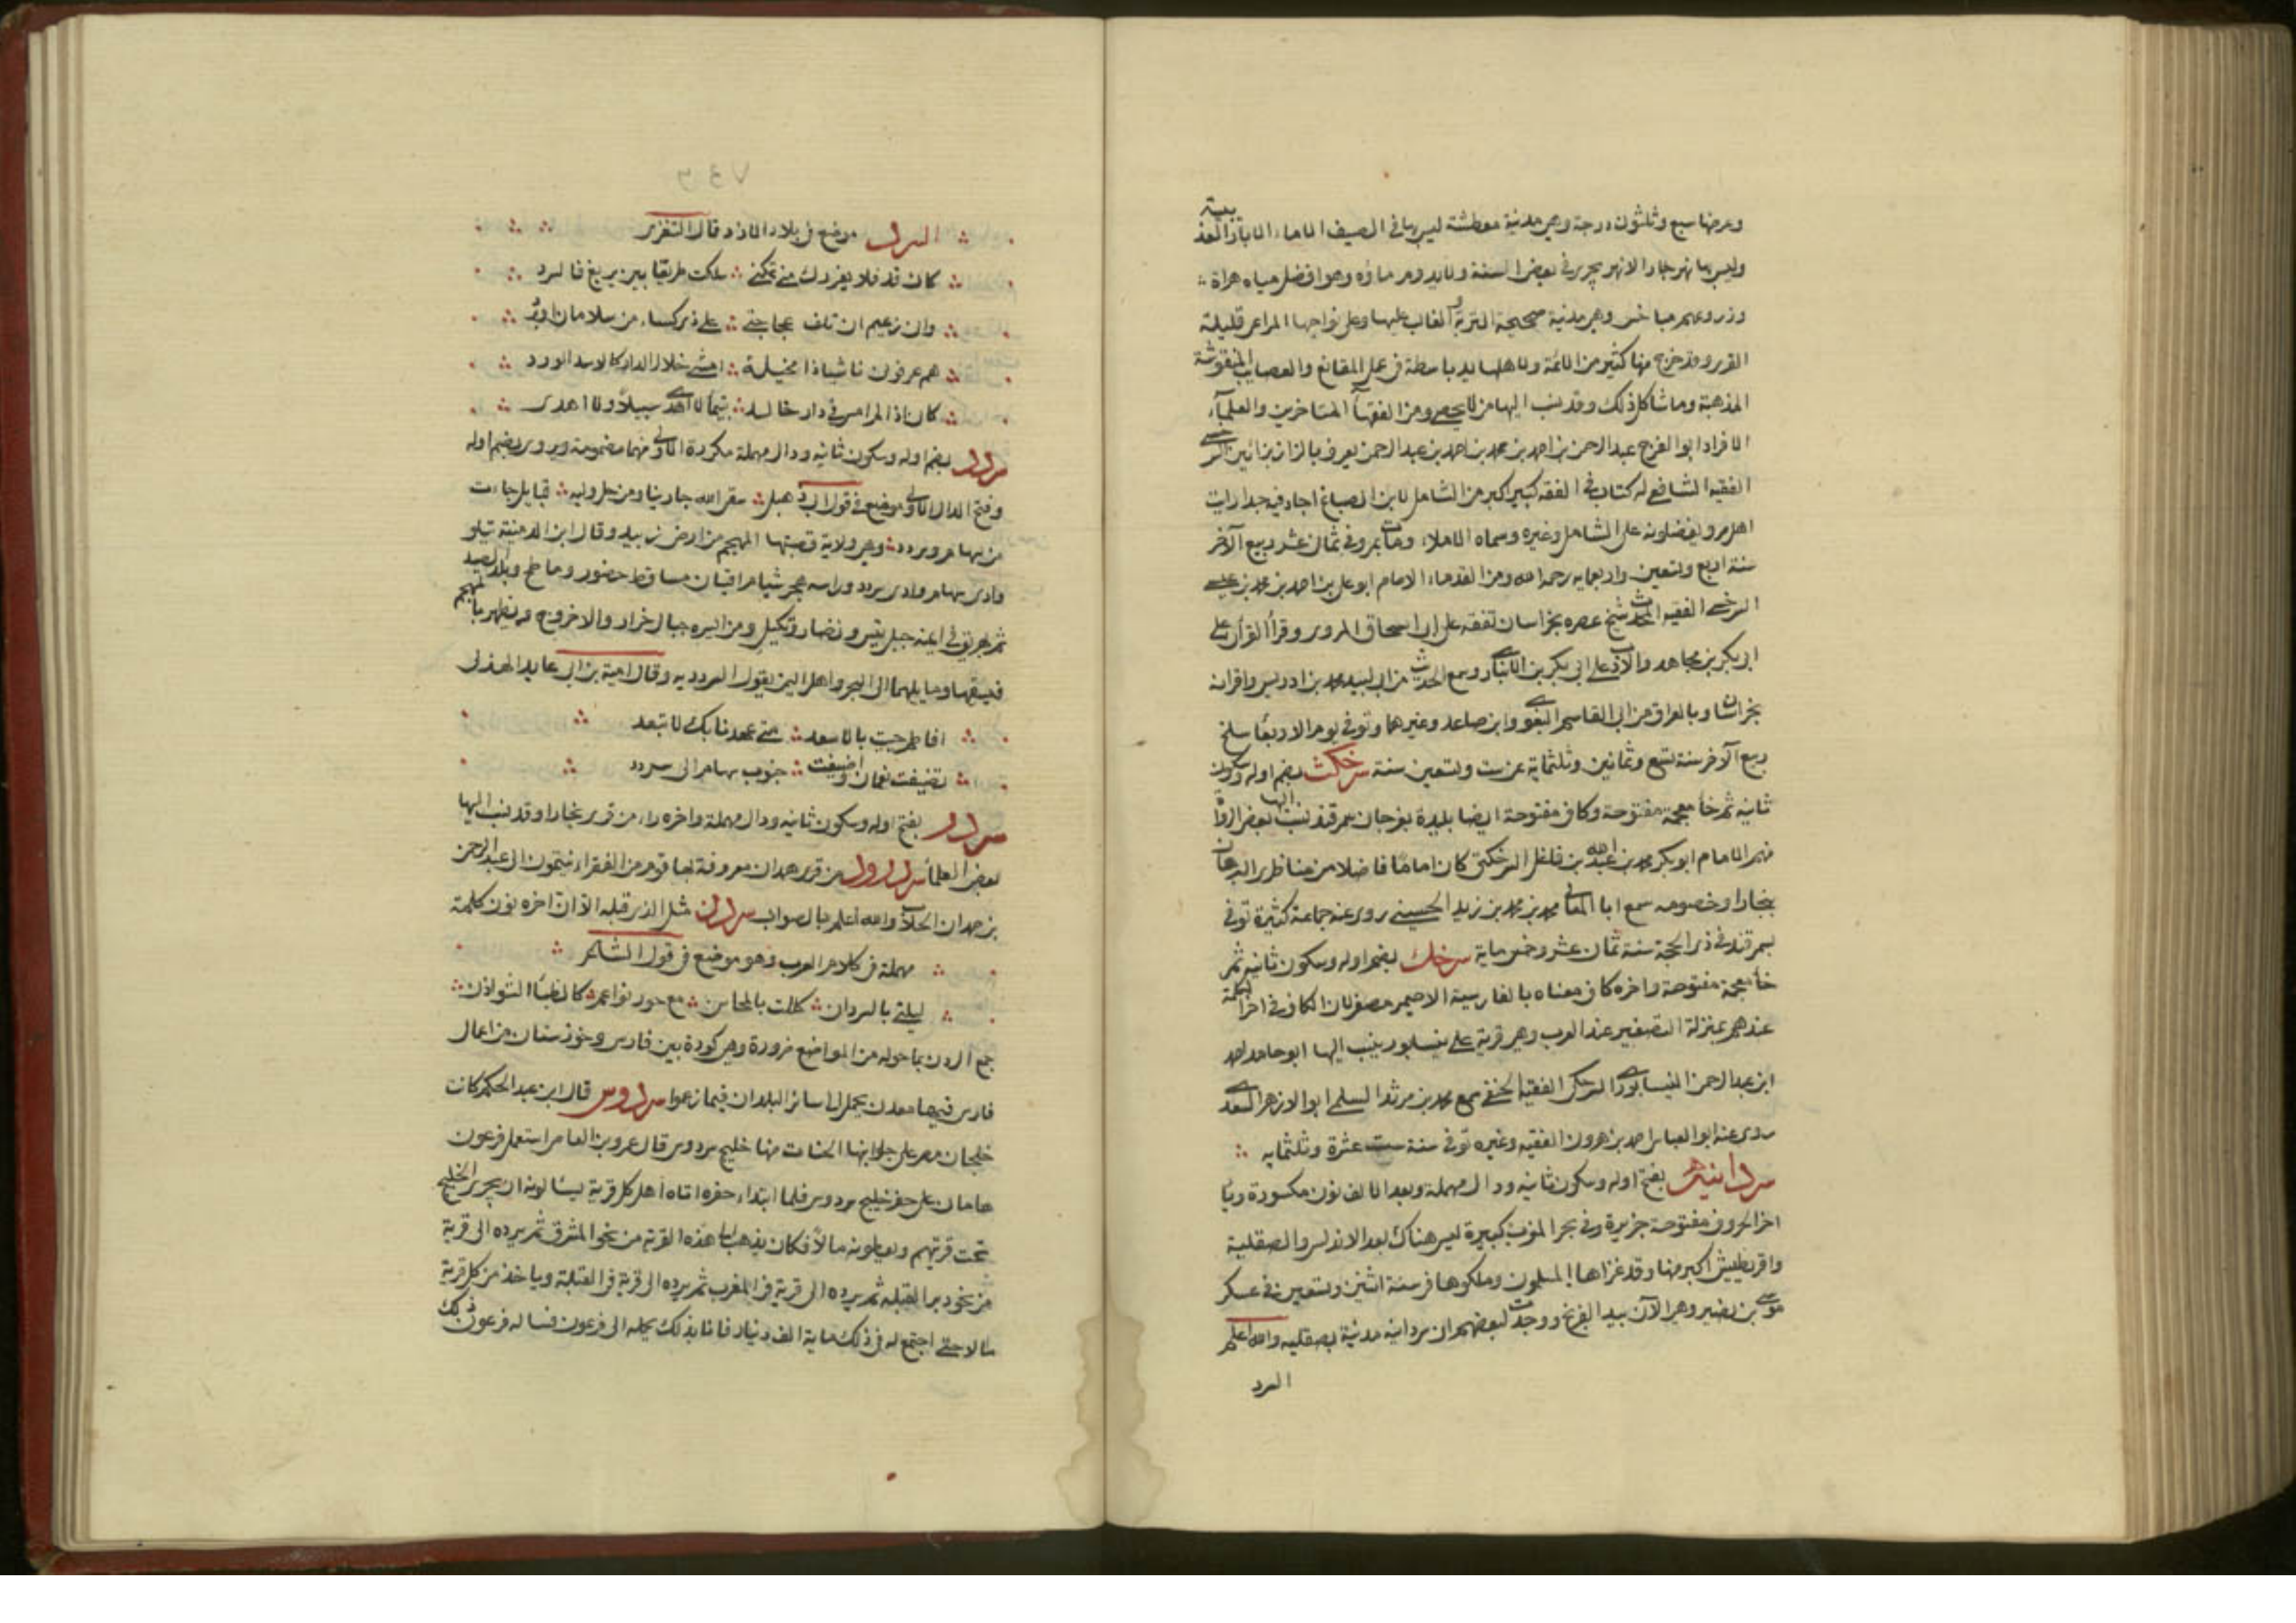 وعرضها سبع وثلثون درجة وهي مدينة معطشة ليس بها في الصيف الا ماء الابار العذبية
وليس بها نهر جار الا نهر يجري في بعض السنة ولا يدوم ماؤه وهو افضل مياه هراة
وزروعهم مباخس وهي مدينة صحيحة التربة والغالب عليها وعلى نواحيها المراعي قليلة
القرى وقد خرج منها كثير من الائمة ولاهلها يد باسطة في عمل المقانع والعصايب المنقوشة
المذهبة وما شاكل ذلك وقد ينسب اليها من لا يحصى ومن الفقهآ المتاخرين والعلمآء
الافراد ابو الفرج عبد الرحمن بن احمد بن محمد بن احمد بن عبد الرحمن يعرف بالزاز
الفقيه الشافعي له كتاب في الفقه كبير اكبر من الشامل لابن الصباغ اجاد فيه جدا رايت
اهل مرو يفضلونه على الشامل وغيره وسماه الاملاء ومات بمرو في ثمان عشر ربيع الآخر
سنة اربع وتسعين واربعمايه رحمه الله ومن القدماء الامام ابو علي بن احمد بن محمد بن عيسى
السرخسي الفقيه المحدث شيخ عصره بخراسان تفقه على ابي اسحاق المروزي وقرأ القرآن على
ابي بكر بن مجاهد والادب على ابي بكر بن الانباري وسمع الحديث من ابي لبيد محمد بن ادريس واقرانه
بخراسان وبالعراق من ابي القاسم البغوي وابن صاعد وغيرهما وتوفي يوم الاربعا سلخ
ربيع الآخر سنة تسع وثمانين وثلثماية عن ست وتسعين سنة سرخكث بضم اوله وسكون
ثانيه ثم خا معجمة مفتوحة وكاف مفتوحة ايضا بليدة بغرجان سمرقند ينسب اليها بعض الرواة
منهم الامام ابو بكر محمد بن عبد الله بن فاعل السرخكتي كان اماما فاضلا من مناظري البرهان
ببخارا وخصومه سمع ابا المعالي محمد بن محمد بن زيد الحسيني روى عنه جماعة كثيرة توفي
بسمرقند في ذي الحجة سنة ثمان عشر وخمس ماية سرخك بضم اوله وسكون ثانيه ثم
خا معجمة مفتوحة واخره كاف معناه بالفارسية الاحيمر مصغر لان الكاف في اخر الكلمة
عندهم بمنزلة التصغير عند العرب وهي قرية على نيسابور ينسب اليها ابو حامد احمد
ابن عبد الرحمن النيسابوري السرخكي الفقيه الحنفي سمع محمد بن مرثد السلمي ابو الازهر السعدي
روى عنه ابو العباس احمد بن هرون الفقيه وغيره توفي سنة ست عشرة وثلثمايه
سردانيه بفتح اوله وسكون ثانيه ودال مهملة وبعد الالف نون مكسورة ويا
اخر الحروف مفتوحة جزيرة في بحر المغرب كبيرة ليس هناك بعد الاندلس والصقلية
واقريطيش اكبر منها وقد غزاها المسلمون وملكوها في سنة اثنين وتسعين في عسكر
موسى بن نصير وهي الآن بيد الفرنج ووجدت لبعضهم ان سردانيه مدينة بصقليه والله اعلم
السرد
السرد موضع في بلاد الازد قال الشنفرى
كان قد فلا يغررك مني تمكني سلكت طريقا بين يربغ فالسرد
واني زعيم ان تلف عجاجتي على ذي كساء من سلامان او برد
هم عرفوني ناشيا ذا مخيلة امشي خلال الدار كالاسد الورد
كاني اذا لم امس في دار خالد بتيمآ لا اهدي سبيلاً ولا اهدى
سردد بضم اوله وسكون ثانيه ودال مهملة مكررة الاولى منهما مضمومة ويروى بضم اوله
وفتح الدال الاولى موضع في قول ابي دهبل سقى الله جارينا ومن حل وليه قبايل جاءت
من سهام وسردد وهي ولاية قصبتها المهجم من ارض زبيد وقال ابن الدمينة يتلو
وادي سهام وادي سردد وراسه هجر شبام اقيان مساقط حضور وماطخ وبلد الصيد
ثم يهريق في ايمنه جبل تيس ونضار وبكيل ومن ايسره جبال حراز والاخروج ويظهر بالمهجم
فيسقيها وما يليهما الى البحر واهل اليمن يقول السردديه وقال امية بن ابي عايد الهذلي
افاطم حييت بالاسعد متى عهدنا بك لا تبعد
تصيفت نعمان واصيفت جنوب سهام الى سردد
سردر بفتح اوله وسكون ثانيه ودال مهملة واخره راء من قرى بخارا وقد نسب اليها
بعض العلمآ سردرود من قرى همدان معروفة بها قوم من الفقراء ينتمون الى عبد الرحمن
بن حمدان الجلاب والله اعلم بالصواب سردن مثل الذي قبله الا ان اخره نون كلمة
مهملة في كلام العرب وهو موضع في قول الشاعر
ليلتي بالسردان كللت بالمحاسن مع حور نواعم كالظبا الشوادن
جمع السردن بما حوله من المواضع ضرورة وهي كورة بين فارس وخوزستان من اعمال
فارس فيها معدن يحمل الى سائر البلدان فيما زعموا سردوس قال ابن عبد الحكم كانت
خلجان مصر على جوانبها الجنات منها خليج سردوس قال عمرو بن العاص استعمل فرعون
هامان على حفر خليج سردوس فلما ابتداء حفره اتاه اهل كل قرية يسالونه ان يجري الخليج
تحت قريتهم ويعطونه مالاً فكان يذهب الى هذه القرية من نحو المشرق ثم يرده الى قرية
من نحو دبر القبله ثم يرده الى قرية في المغرب ثم يرده الى قرية في القبلة وياخذ من كل قرية
مالا حتى اجتمع له في ذلك ماية الف دينار فاتا بذلك يحمله الى فرعون فساله فرعون عن ذلك